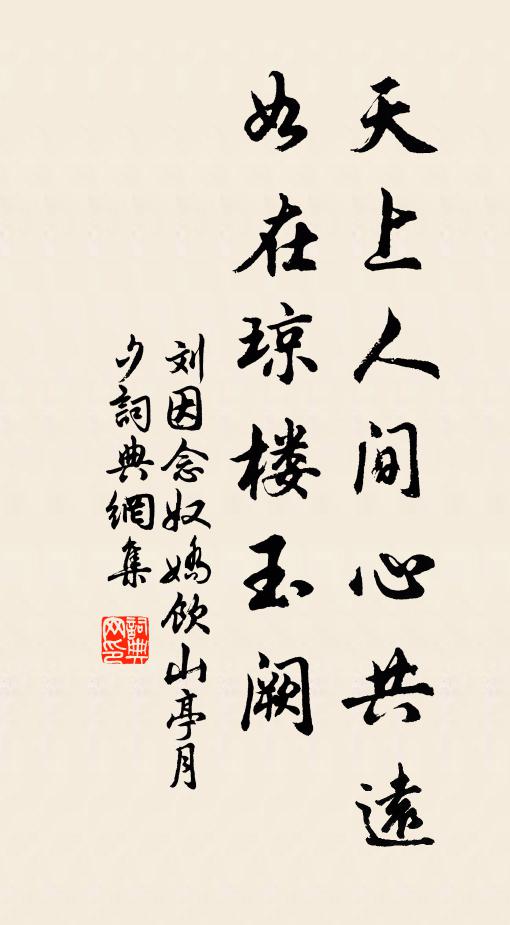 天上人间心共遠
如在琼楼玉阙
刘因念奴嬌飲山亭月
夕詞典網集
詞典网印